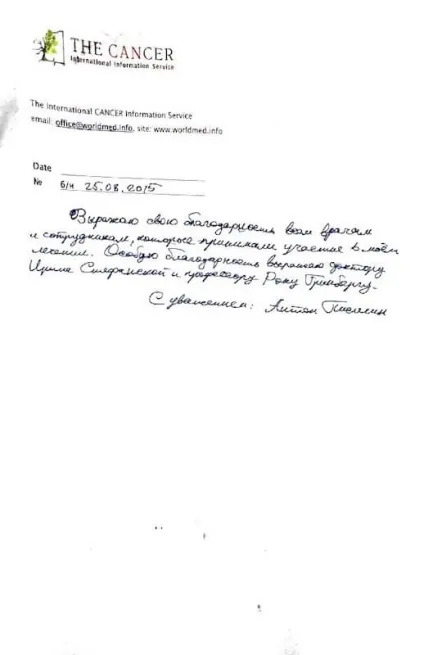 THE CANCER
International Information Service
The International CANCER Information Service
email: office@worldmed.info, site: www.worldmed.info
Date
№ б/н 25.08.2015
Выражаю свою благодарность всем врачам
и сотрудникам, которые принимали участие в моём
лечении. Особую благодарность выражаю доктору
Ирине Стефанской и профессору Рону Гринбергу.
С уважением: Антон